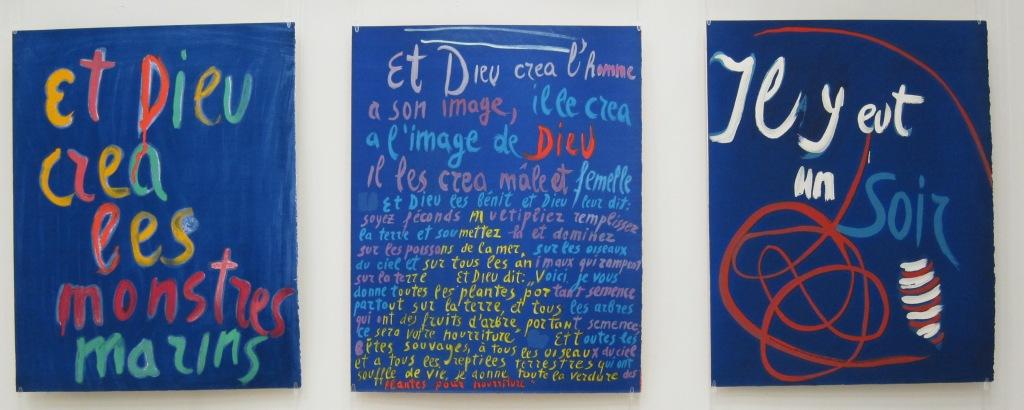 Et Dieu
crea
les
monstres
marins
Et Dieu crea l'homme
a son image, il le crea
a l'image de Dieu
il les crea mâle et femelle
Et Dieu les bénit et Dieu leur dit:
soyez féconds Multipliez remplissez
la terre et soumettez-la et dominez
sur les poissons de la mer, sur les oiseaux
du ciel et sur tous les animaux qui rampent
sur la terre Et Dieu dit: Voici je vous
donne toutes les plantes portant semence
partout sur la terre, et tous les arbres
qui ont des fruits d'arbre portant semence;
ce sera votre nourriture Et toutes les
Bêtes sauvages, à tous les oiseaux du ciel
et a tous les reptiles terrestres qui ont
souffle de vie, je donne toute la verdure des
plantes pour nourriture
Il y eut
un
Soir